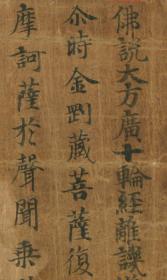 佛說大方廣十輪經離譏
尒時金剛藏菩薩復
摩訶薩於聲聞乗